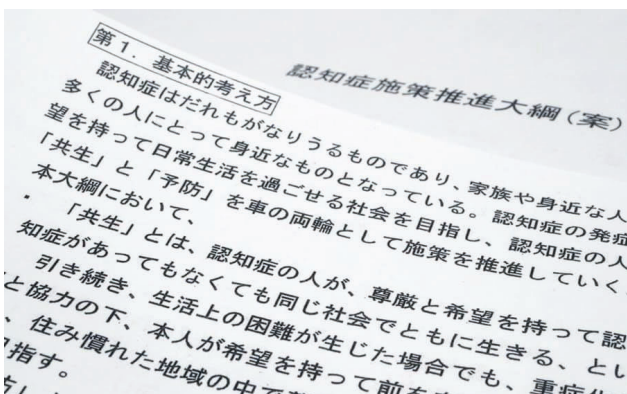 認知症施策推進大綱(案)
第1．基本的考え方
認知症はだれもがなりうるものであり、家族や身近な人
多くの人にとって身近なものとなっている。認知症の発症
望を持って日常生活を過ごせる社会を目指し、認知症の人
「共生」と「予防」を車の両輪として施策を推進していく
本大綱において、
・「共生」とは、認知症の人が、尊厳と希望を持って認
知症があってもなくても同じ社会でともに生きる、とい
引き続き、生活上の困難が生じた場合でも、重症化
と協力の下、本人が希望を持って前を
、住み慣れた地域の中で
指す。